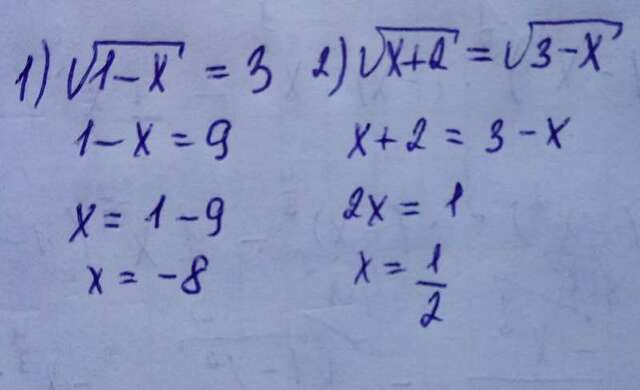 1) √1-x = 3
1-x = 9
x = 1-9
x = -8
2) √x+2 = √3-x
x+2 = 3-x
2x = 1
x = 1/2